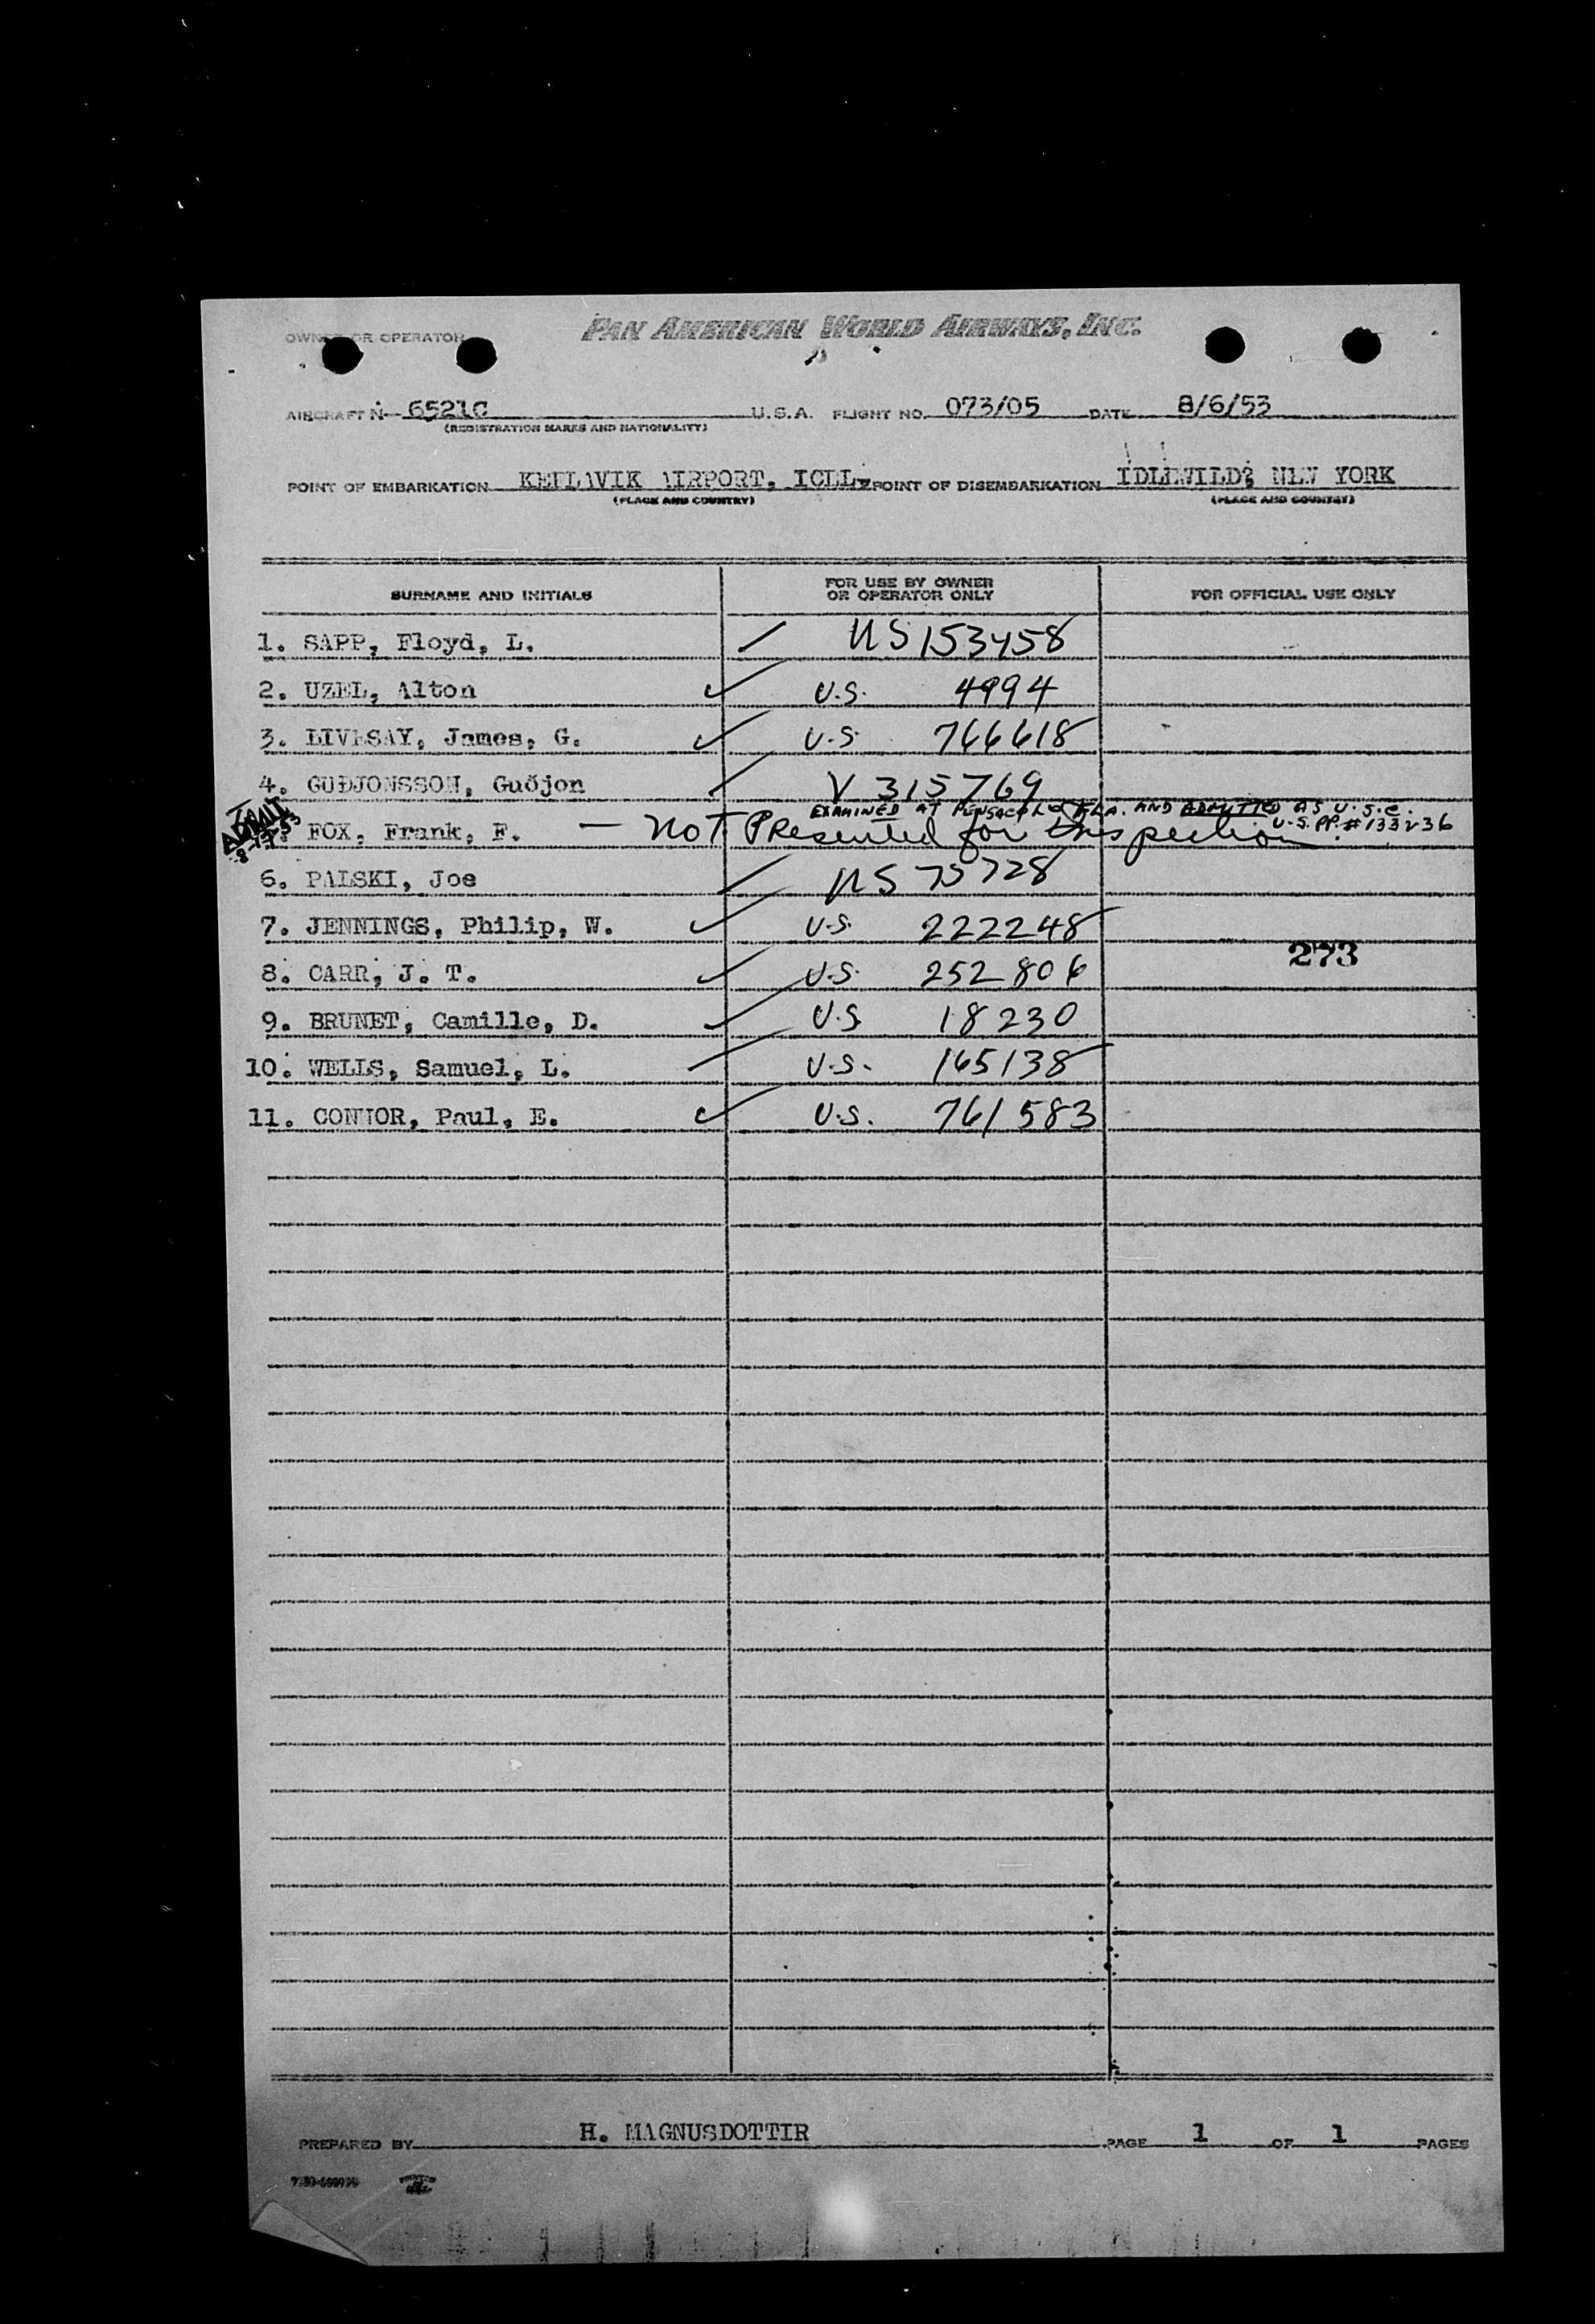 PAN AMERICAN WORLD AIRWAYS, INC.
OWNER OR OPERATOR
AIRCRAFT N- 6521C U.S.A. FLIGHT NO. 073/05 DATE 8/6/53
(REGISTRATION MARKS AND NATIONALITY)
POINT OF EMBARKATION KEFLAVIK AIRPORT, ICEL. POINT OF DISEMBARKATION IDLEWILD, NEW YORK
(PLACE AND COUNTRY) (PLACE AND COUNTRY)
SURNAME AND INITIALS FOR USE BY OWNER OR OPERATOR ONLY FOR OFFICIAL USE ONLY
1. SAPP, Floyd, L. US 153458
2. UZEL, Alton U.S. 4994
3. LIVESAY, James, G. U.S. 766618
4. GUÐJONSSON, Guðjon V 315769
EXAMINED AT PENSACOLA FLA. AND ADMITTED AS U.S.C.
U.S. PP. # 133236
ADMIT
FOX, Frank, F. — NOT Presented for inspection.
6. PALSKI, Joe US 75728
7. JENNINGS, Philip, W. U.S. 222248
273
8. CARR, J. T. U.S. 252806
9. BRUNET, Camille, D. U.S. 18230
10. WELLS, Samuel, L. U.S. 165138
11. CONNOR, Paul, E. U.S. 761583
PREPARED BY H. MAGNUSDOTTIR PAGE 1 OF 1 PAGES